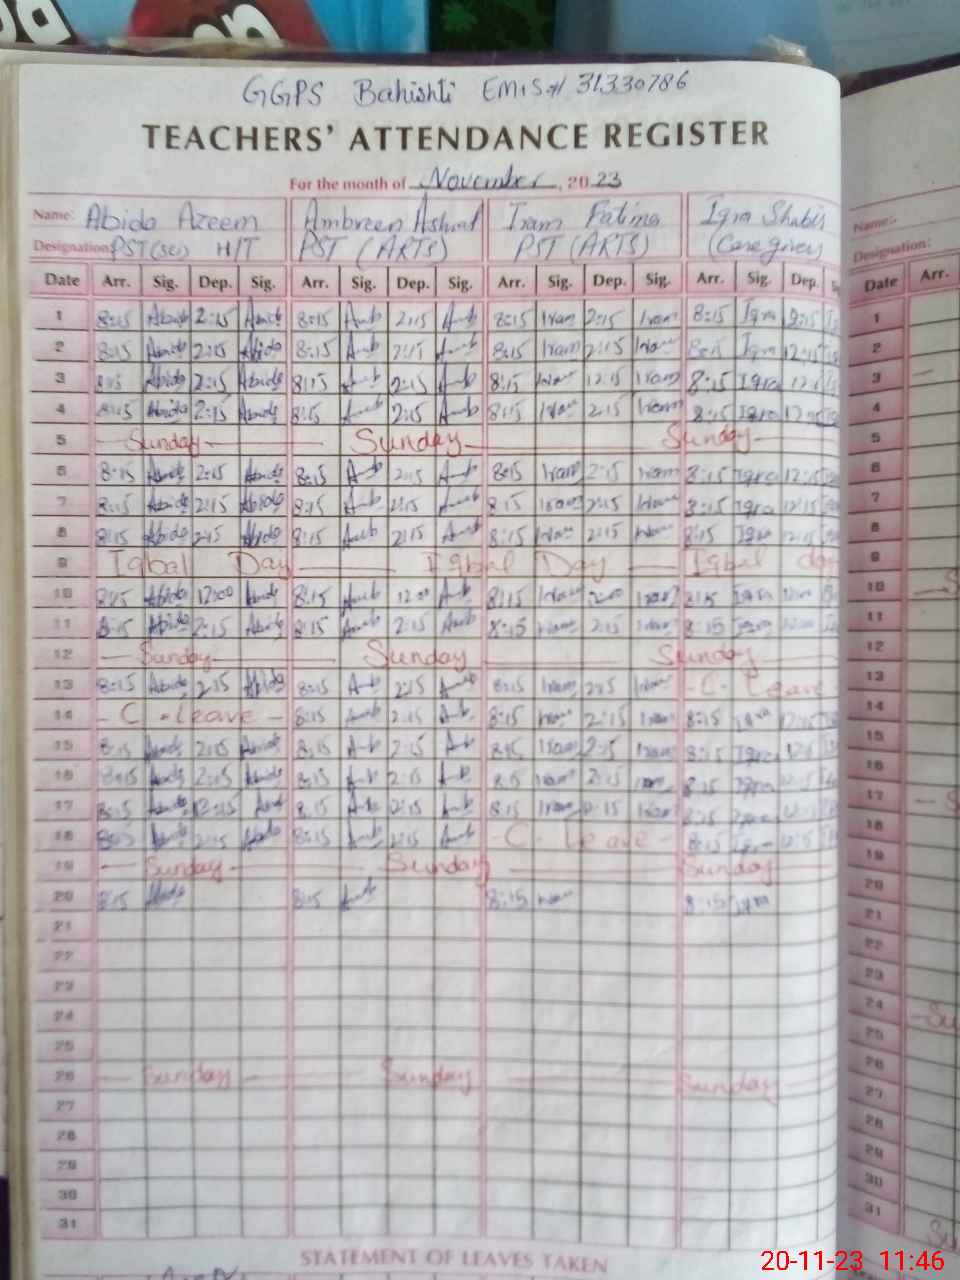 GGPS Bahishti EMIS# 31330786
TEACHERS' ATTENDANCE REGISTER
For the month of November, 2023
Name: Abida Azeem Ambreen Ashraf Iram Fatima Iqra Shabir
Designation: PST(se) H/T PST (ARTS) PST (ARTS) (Care giver)
Date Arr. Sig. Dep. Sig. Arr. Sig. Dep. Sig. Arr. Sig. Dep. Sig. Arr. Sig. Dep.
1 8:15 Abida 2:15 Abida 8:15 Amb 2:15 Amb 8:15 Iram 2:15 Iram 8:15 Iqra
2 8:15 Abida 2:15 Abida 8:15 Amb 2:15 Amb 8:15 Iram 2:15 Iram 8:15 Iqra 12:15
3 8:15 Abida 2:15 Abida 8:15 Amb 2:15 Amb 8:15 Iram 12:15 Iram 8:15 Iqra
4 8:15 Abida 2:15 Abida 8:15 Amb 2:15 Amb 8:15 Iram 2:15 Iram 8:15 Iqra
5 Sunday Sunday Sunday
6 8:15 Abida 2:15 Abida 8:15 Amb 2:15 Amb 8:15 Iram 2:15 Iram 8:15 Iqra 12:15
7 8:15 Abida 2:15 Abida 8:15 Amb 2:15 Amb 8:15 Iram 2:15 Iram 8:15 Iqra 12:15
8 8:15 Abida 2:15 Abida 8:15 Amb 2:15 Amb 8:15 Iram 2:15 Iram 8:15 Iqra 12:15
9 Iqbal Day Iqbal Day Iqbal day
10 8:15 Abida 12:00 Abida 8:15 Amb 12:00 Amb 8:15 Iram Iram 8:15 Iqra
11 8:15 Abida 2:15 Abida 8:15 Amb 2:15 Amb 8:15 Iram 2:15 Iram 8:15 Iqra
12 Sunday Sunday Sunday
13 8:15 Abida 2:15 Abida 8:15 Amb 2:15 Amb 8:15 Iram 2:15 Iram - C. Leave
14 - C. leave - 8:15 Amb 2:15 Amb 8:15 Iram 2:15 Iram 8:15 Iqra 12:15
15 8:15 Abida 2:15 Abida 8:15 Amb 2:15 Amb 8:15 Iram 2:15 Iram 8:15 Iqra
16 8:15 Abida 2:15 Abida 8:15 Amb 2:15 Amb 8:15 Iram 2:15 Iram 8:15 Iqra
17 8:15 Abida Abida 8:15 Amb 2:15 Amb 8:15 Iram 2:15 Iram 8:15 Iqra
18 Abida 2:15 Abida 8:15 Amb 2:15 Amb - C. Leave - 8:15 Iqra 12:15
19 Sunday Sunday Sunday
20 8:15 Abida 8:15 Amb 8:15 Iram 8:15 Iqra
21
22
23
24
25
26 Sunday Sunday Sunday
27
28
29
30
31
STATEMENT OF LEAVES TAKEN
Name:
Designation:
Date Arr.
1
2
3
4
5
6
7
8
9
10
11
12
13
14
15
16
17
18
19
20
21
22
23
24
25
26
27
28
29
30
31
20-11-23 11:46